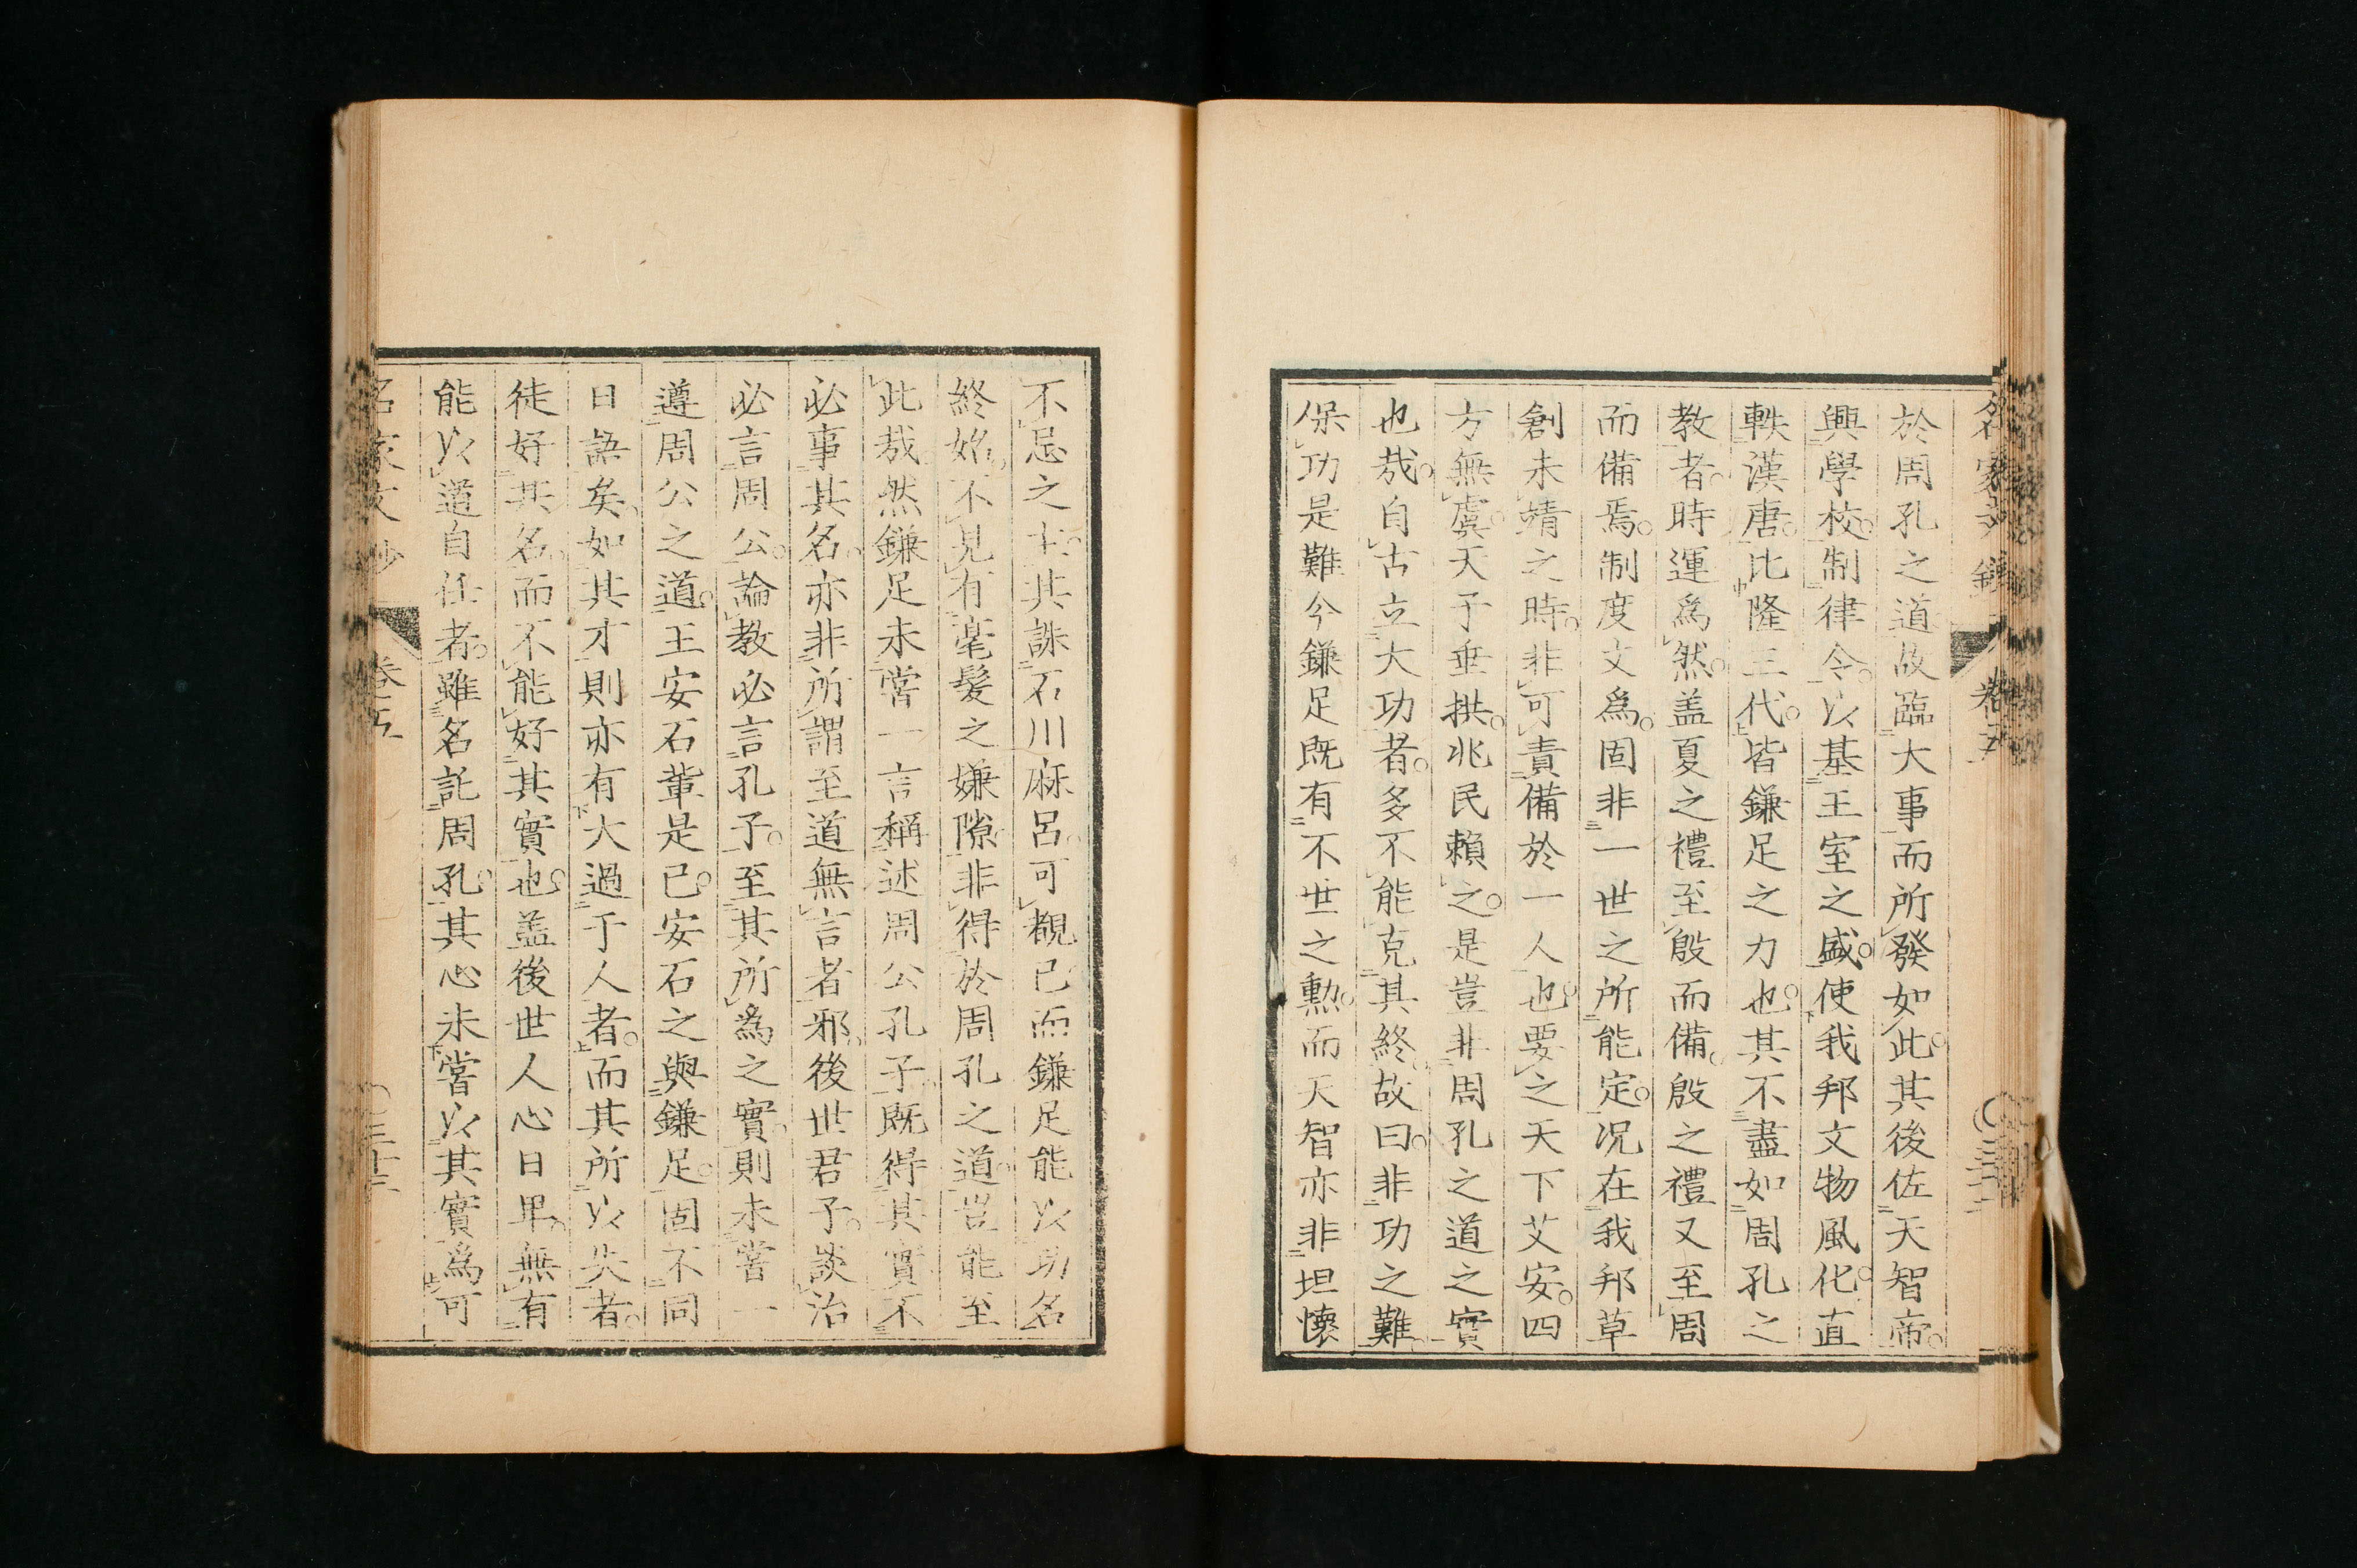 於周孔之道故臨大事而所發如此其後佐天智帝
興學校制律令以基王室之盛使我邦文物風化直
軼漢唐比隆三代皆鎌足之力也其不盡如周孔之
教者時運爲然盖夏之禮至殷而備殷之禮又至周
而備焉制度文爲固非一世之所能定况在我邦草
創未靖之時非可責備於一人也要之天下艾安四
方無虞天子垂拱兆民賴之是豈非周孔之道之實
也哉自古立大功者多不能克其終故曰非功之難
保功是難今鎌足既有不世之勲而天智亦非坦懷
不忌之主其誅石川麻呂可覩已而鎌足能以功名
終始不見有毫髮之嫌隙非得於周孔之道豈能至
此哉然鎌足未嘗一言稱述周公孔子既得其實不
必事其名亦非所謂至道無言者邪後世君子談治
必言周公論教必言孔子至其所爲之實則未嘗一
遵周公之道王安石輩是已安石之與鎌足固不同
日語矣如其才則亦有大過于人者而其所以失者
徒好其名而不能好其實也盖後世人心日卑無有
能以道自任者雖名託周孔其心未嘗以其實爲可
名家文鈔 卷五